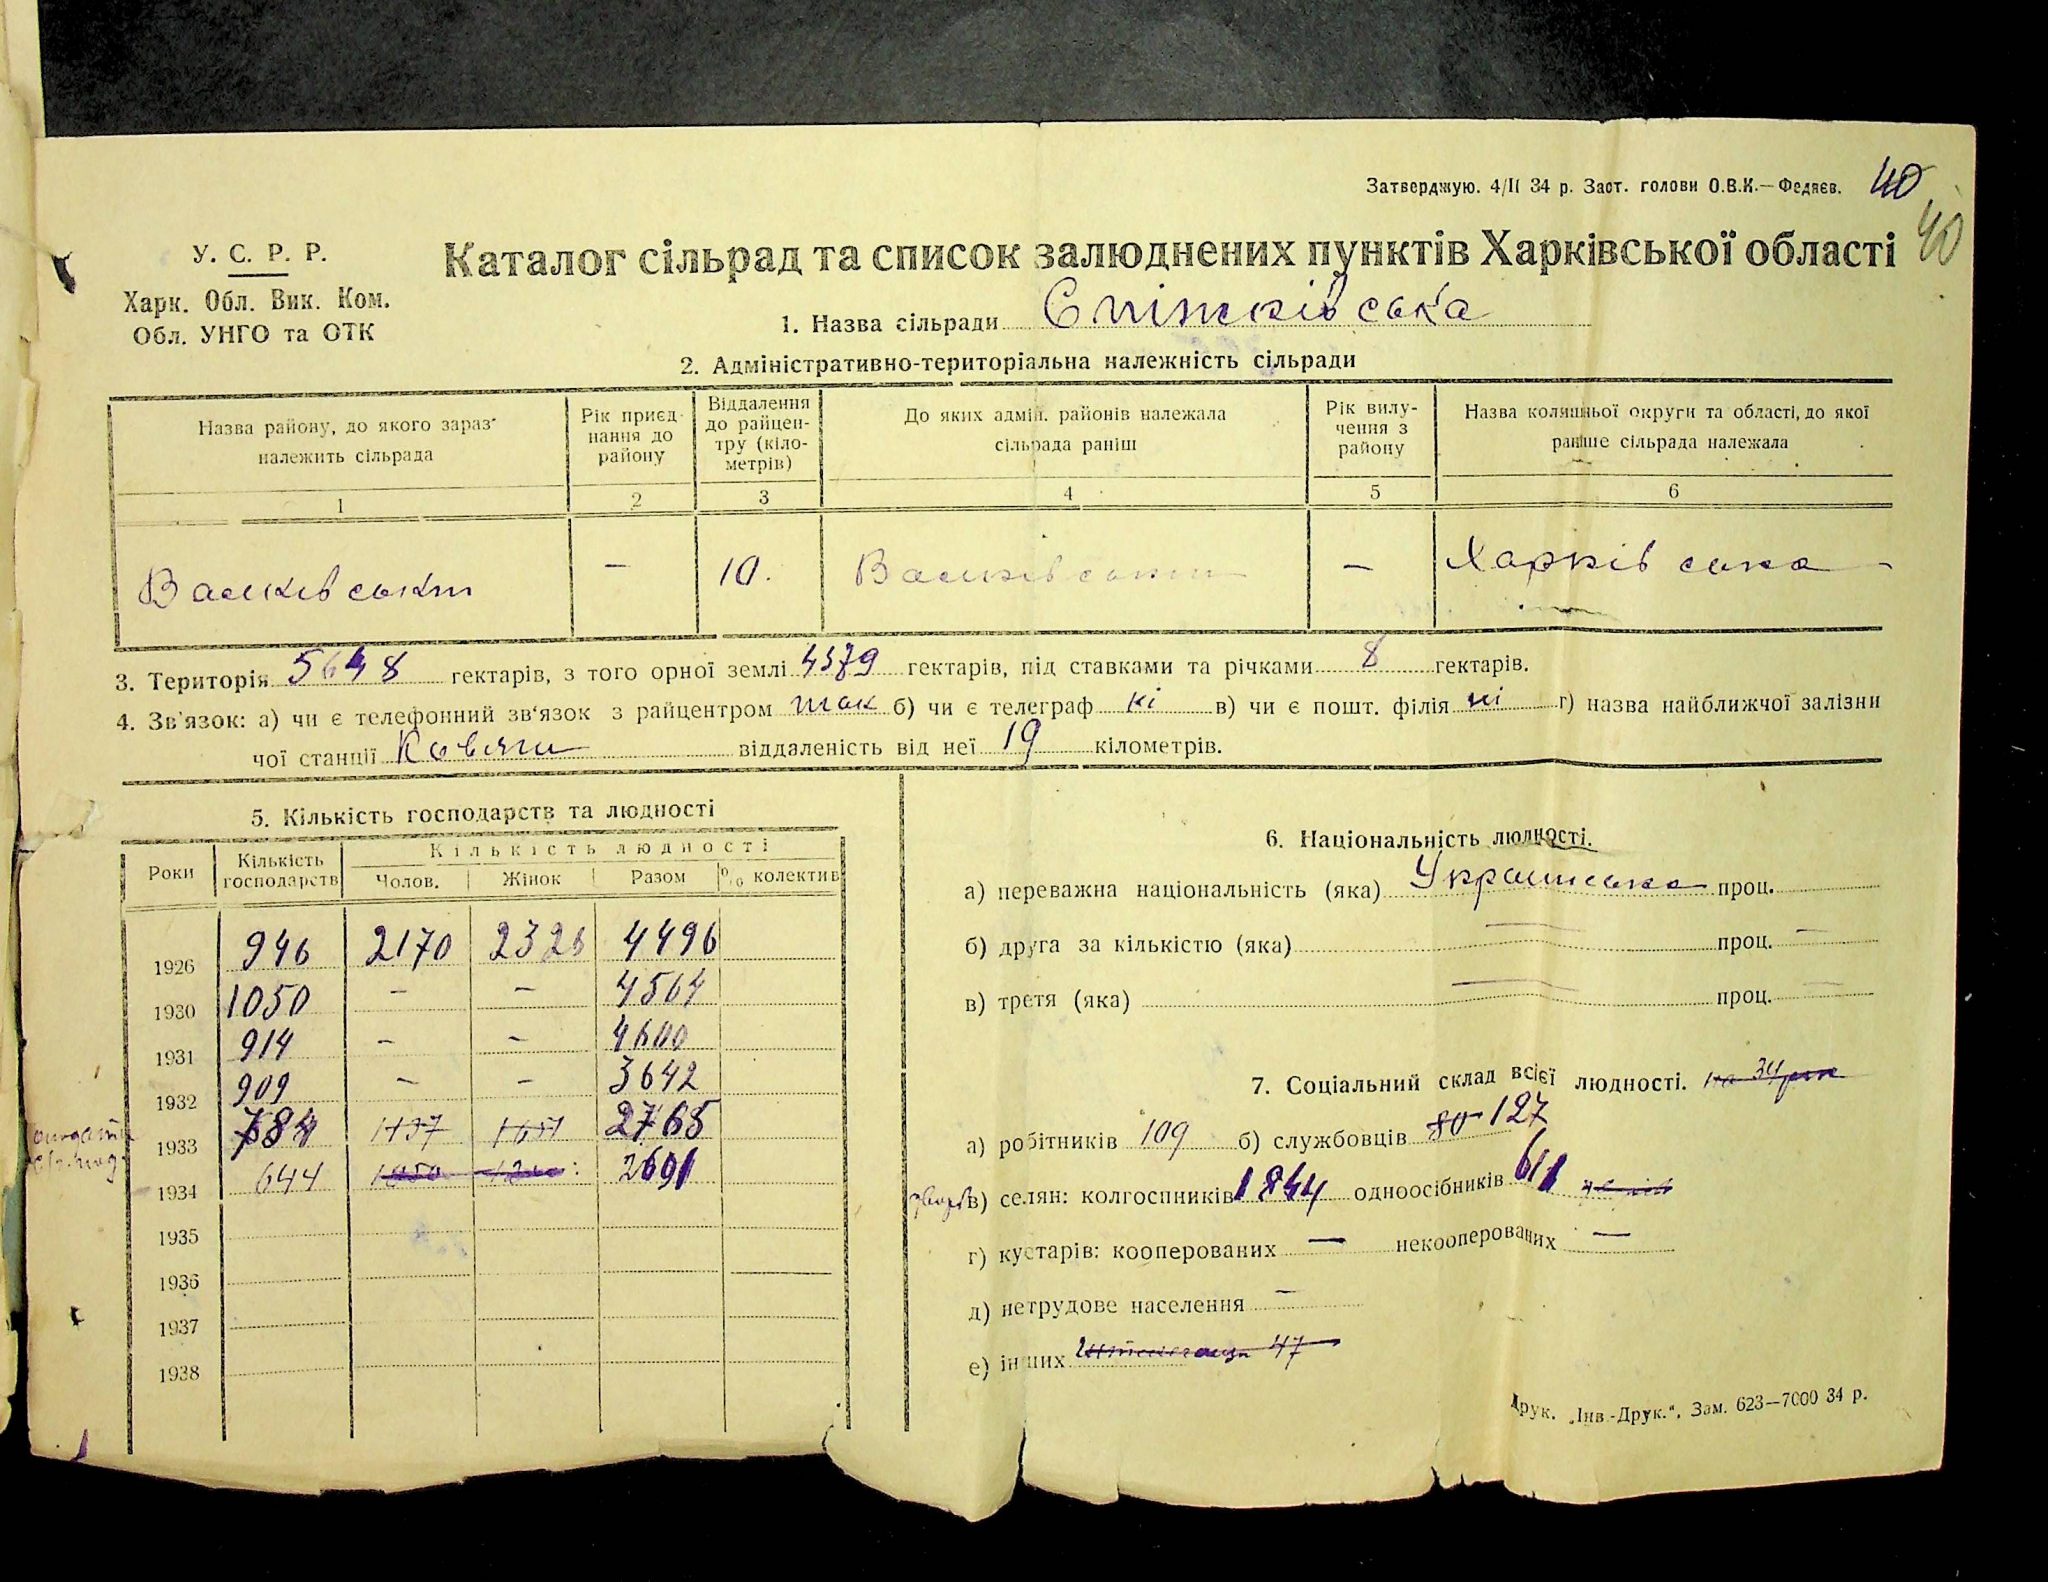 Затверджую. 4/II 34 р. Заст. голови О.В.К.— Федяєв. 40
40
У. С. Р. Р.
Харк. Обл. Вик. Ком.
Обл. УНГО та ОТК
Каталог сільрад та список залюднених пунктів Харківської області
1. Назва сільради Сніжківська
2. Адміністративно-територіальна належність сільради
Назва району, до якого зараз належить сільрада
Рік приєднання до району
Віддалення до райцентру (кілометрів)
До яких адмін. районів належала сільрада раніш
Рік вилучення з району
Назва колишньої округи та області, до якої раніше сільрада належала
1 2 3 4 5 6
Валківський — 10. Валківський — Харківська —
3. Територія 5648 гектарів, з того орної землі 4379 гектарів, під ставками та річками 8 гектарів.
4. Зв'язок: а) чи є телефонний зв'язок з райцентром так б) чи є телеграф ні в) чи є пошт. філія ні г) назва найближчої залізни
чої станції Ков'яги віддаленість від неї 19 кілометрів.
5. Кількість господарств та людності
Роки Кількість господарств Кількість людності
Чолов. Жінок Разом % колектив
1926 946 2170 2326 4496
1930 1050 — — 4564
1931 914 — — 4600
1932 909 — — 3642
1933 784 1137 2765
1934 644 2691
1935
1936
1937
1938
6. Національність людності.
а) переважна національність (яка) Українська проц.
б) друга за кількістю (яка) — проц. —
в) третя (яка) — проц. —
7. Соціальний склад всієї людності. на 34 рік
а) робітників 109 б) службовців 80 127
в) селян: колгоспників 1844 одноосібників 611
г) кустарів: кооперованих — некооперованих —
д) нетрудове населення —
е) інших 47
Друк. „Інв.-Друк.“. Зам. 623—7000 34 р.